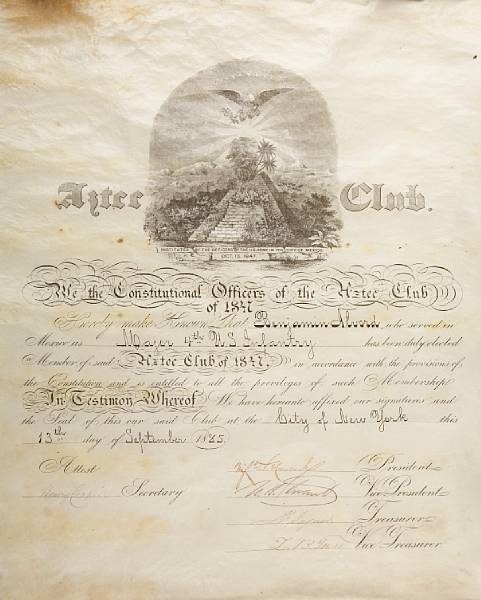 Aztec Club.
INSTITUTED BY THE OFFICERS OF THE U.S. ARMY IN THE CITY OF MEXICO
OCT. 13. 1847.
We the Constitutional Officers of the Aztec Club
of 1847
Hereby make Known that Benjamin Alvord, who served in
Mexico as Major 4th U.S. Infantry has been duly elected
Member of said Aztec Club of 1847, in accordance with the provisions of
the Constitution and is entitled to all the privileges of such Membership
In Testimony Whereof We have hereunto affixed our signatures and
the Seal of this our said Club at the City of New York this
13th day of September 1885
Attest President
Secretary Vice President
Treasurer
Vice Treasurer